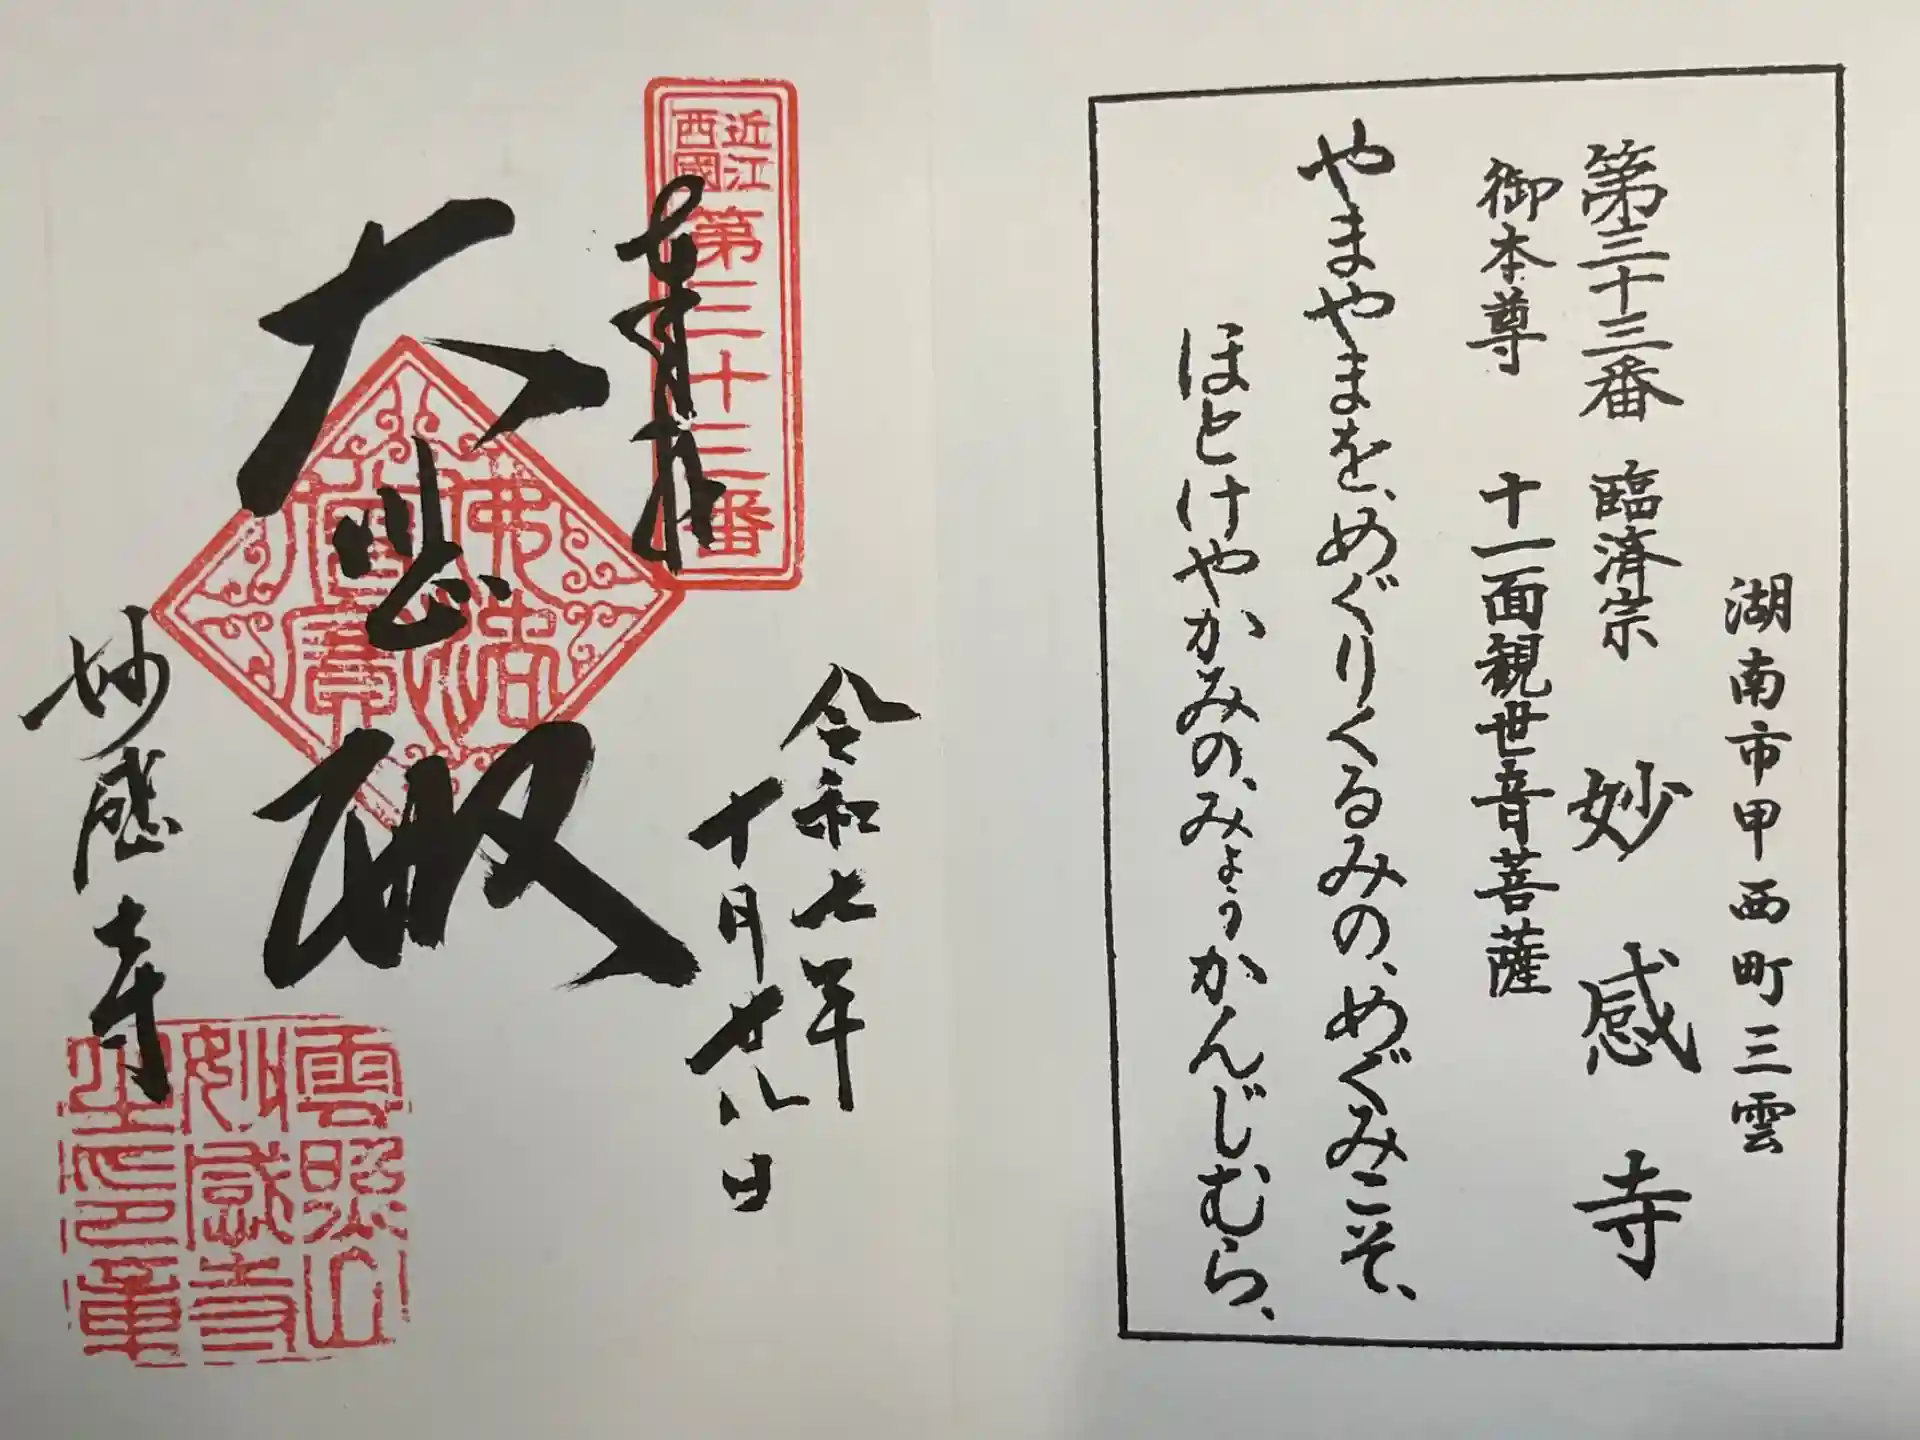 湖南市甲西町三雲
第三十三番 臨済宗 妙感寺
御本尊 十一面観世音菩薩
やまやまを、めぐりくるみの、めぐみこそ、
ほとけやかみの、みょうかんじむら、
近江
西國
第三十三番
奉拝
令和七年
十月廿八日
大悲殿
佛法
僧寳
妙感寺
雲照山
妙感寺
之印章